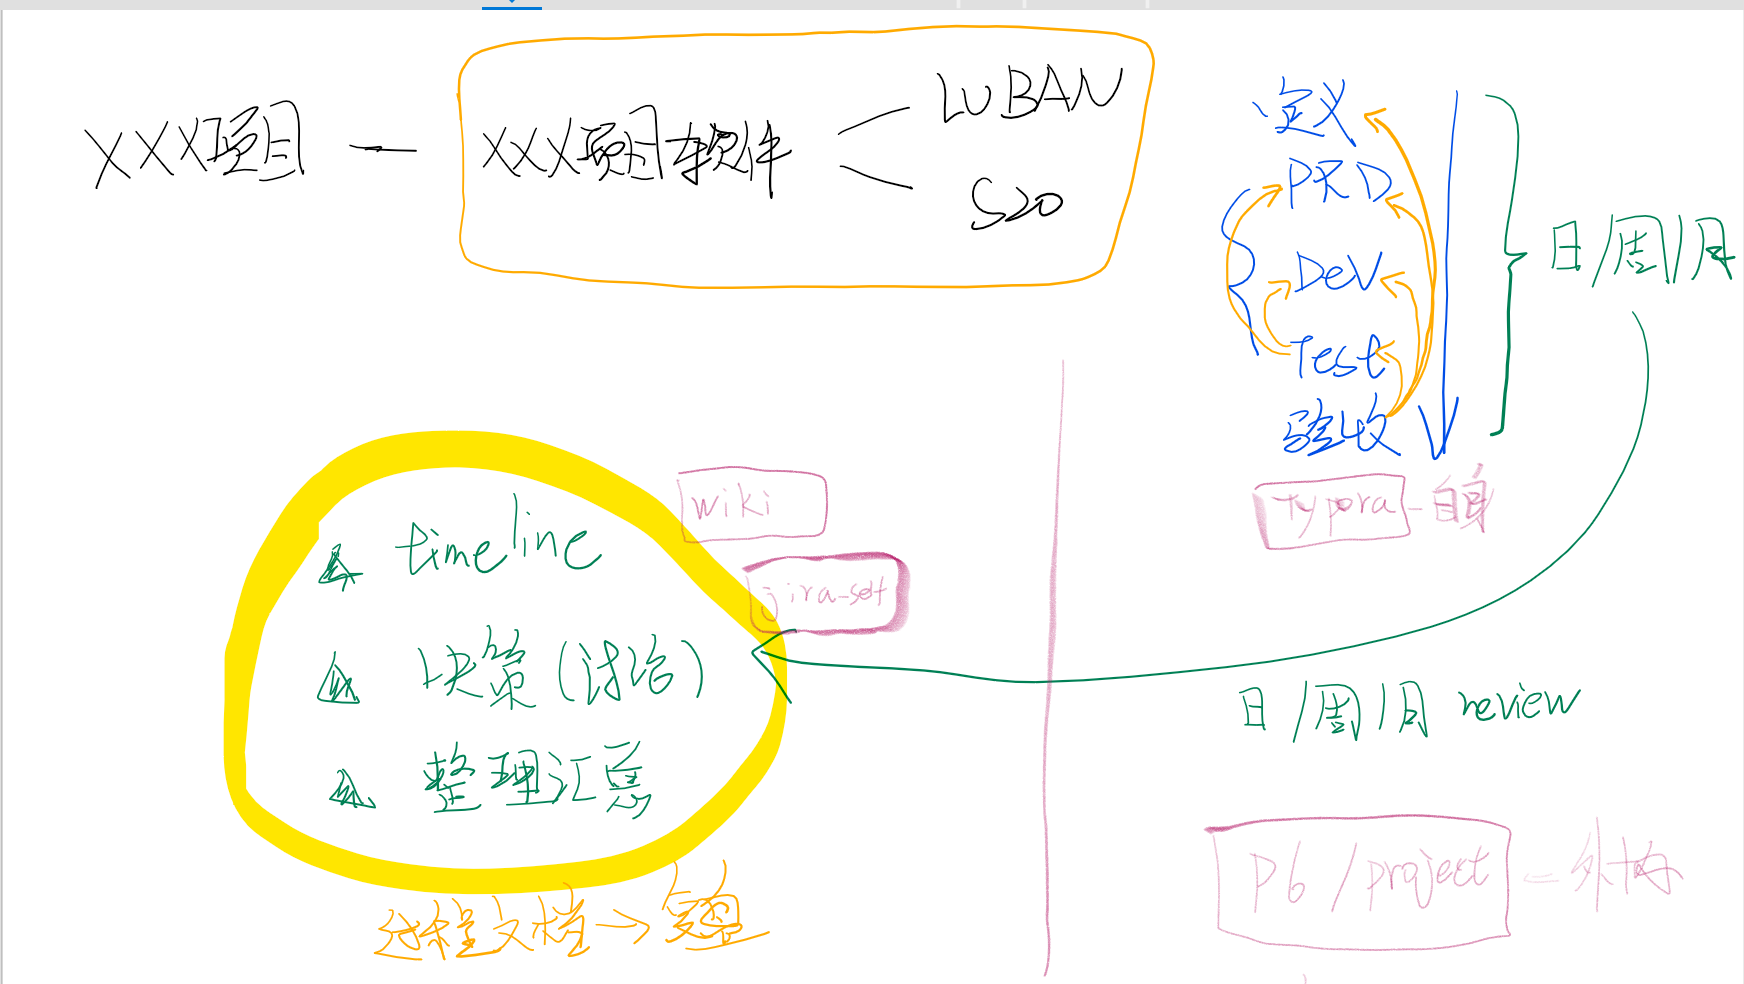 XXX项目 — XXX项目软件
LUBAN
S20
定义
PRD
Dev
Test
验收
日/周/月
Typora - 自身
wiki
jira-self
timeline
决策(讨论)
整理汇总
过程文档→复盘
日/周/月 review
P6/project - 外协